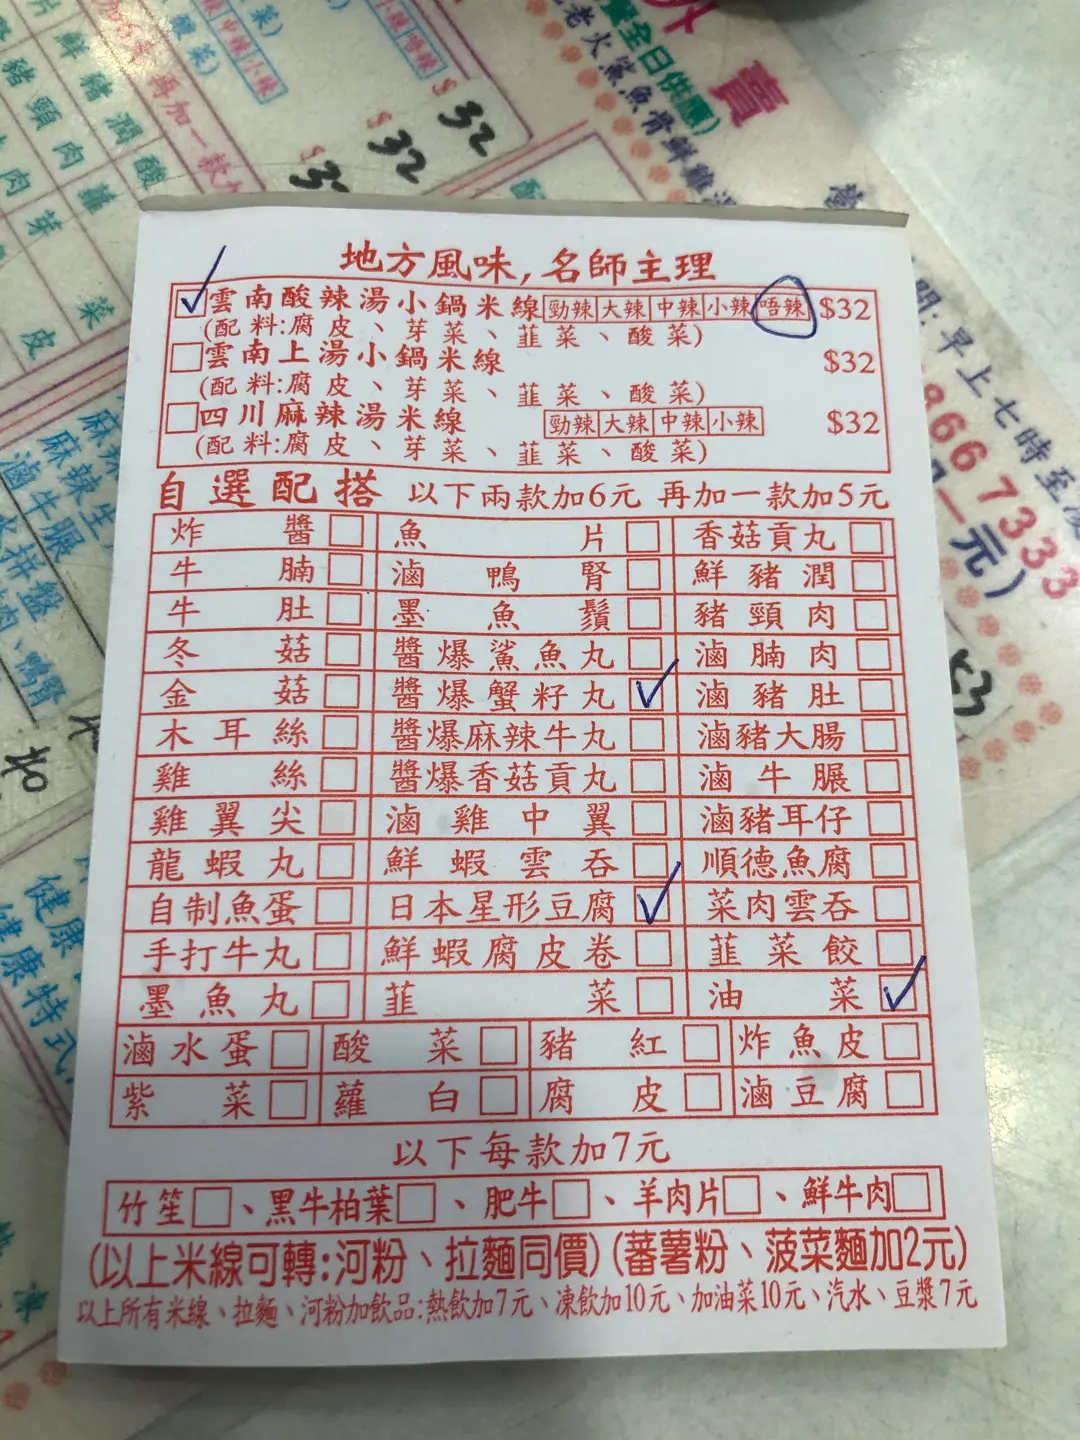 賣
全日供應)
老火鯊魚骨鮮雞湯
$32
$32
早上七時至凌
8667333
一元)
地方風味,名師主理
雲南酸辣湯小鍋米線 勁辣 大辣 中辣 小辣 唔辣 $32
(配料:腐皮、芽菜、韮菜、酸菜)
雲南上湯小鍋米線 $32
(配料:腐皮、芽菜、韮菜、酸菜)
四川麻辣湯米線 勁辣 大辣 中辣 小辣 $32
(配料:腐皮、芽菜、韮菜、酸菜)
自選配搭 以下兩款加6元 再加一款加5元
炸醬 魚片 香菇貢丸
牛腩 滷鴨腎 鮮豬潤
牛肚 墨魚鬚 豬頸肉
冬菇 醬爆鯊魚丸 滷腩肉
金菇 醬爆蟹籽丸 滷豬肚
木耳絲 醬爆麻辣牛丸 滷豬大腸
雞絲 醬爆香菇貢丸 滷牛𦟌
雞翼尖 滷雞中翼 滷豬耳仔
龍蝦丸 鮮蝦雲吞 順德魚腐
自制魚蛋 日本星形豆腐 菜肉雲吞
手打牛丸 鮮蝦腐皮卷 韮菜餃
墨魚丸 韮菜 油菜
滷水蛋 酸菜 豬紅 炸魚皮
紫菜 蘿白 腐皮 滷豆腐
以下每款加7元
竹笙、黑牛柏葉、肥牛、羊肉片、鮮牛肉
(以上米線可轉:河粉、拉麵同價)(蕃薯粉、菠菜麵加2元)
以上所有米線、拉麵、河粉加飲品:熱飲加7元、凍飲加10元、加油菜10元、汽水、豆漿7元